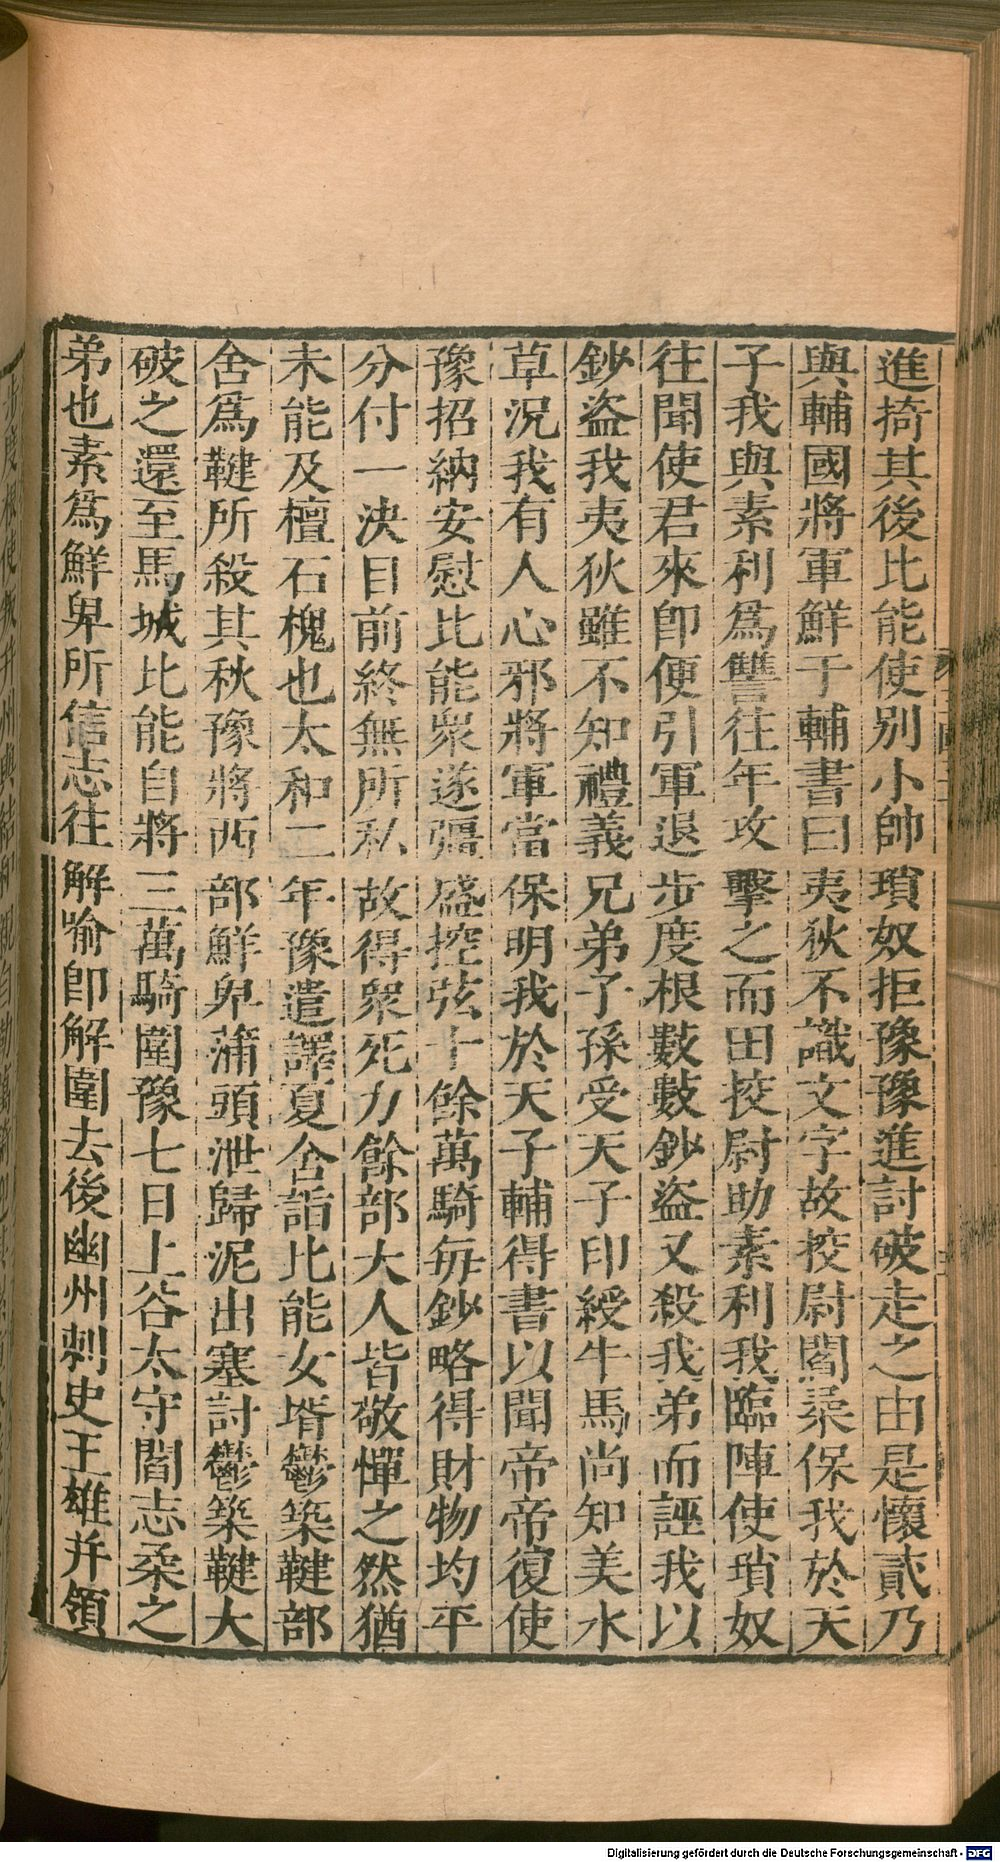 進掎其後比能使別小帥瑣奴拒豫豫進討破走之由是懷貳乃
與輔國將軍鮮于輔書曰夷狄不識文字故挍尉閻柔保我於天
子我與素利爲讐往年攻擊之而田挍尉助素利我臨陣使瑣奴
往聞使君來卽便引軍退步度根數數鈔盜又殺我弟而誣我以
鈔盜我夷狄雖不知禮義兄弟子孫受天子印綬牛馬尚知美水
草況我有人心邪將軍當保明我於天子輔得書以聞帝帝復使
豫招納安慰比能衆遂彊盛控弦十餘萬騎每鈔略得財物均平
分付一決目前終無所私故得衆死力餘部大人皆敬憚之然猶
未能及檀石槐也太和二年豫遣譯夏舍詣比能女壻鬱築鞬部
舍爲鞬所殺其秋豫將西部鮮卑蒲頭泄歸泥出塞討鬱築鞬大
破之還至馬城比能自將三萬騎圍豫七日上谷太守閻志柔之
弟也素爲鮮卑所信志往解喻卽解圍去後幽州刺史王雄并領
Digitalisierung gefördert durch die Deutsche Forschungsgemeinschaft - DFG